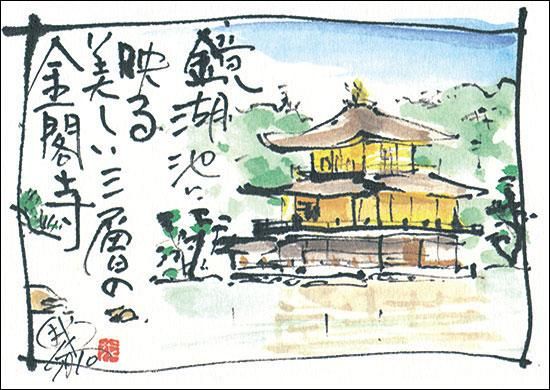 鏡湖池に
映る
美しい三層の
金閣寺